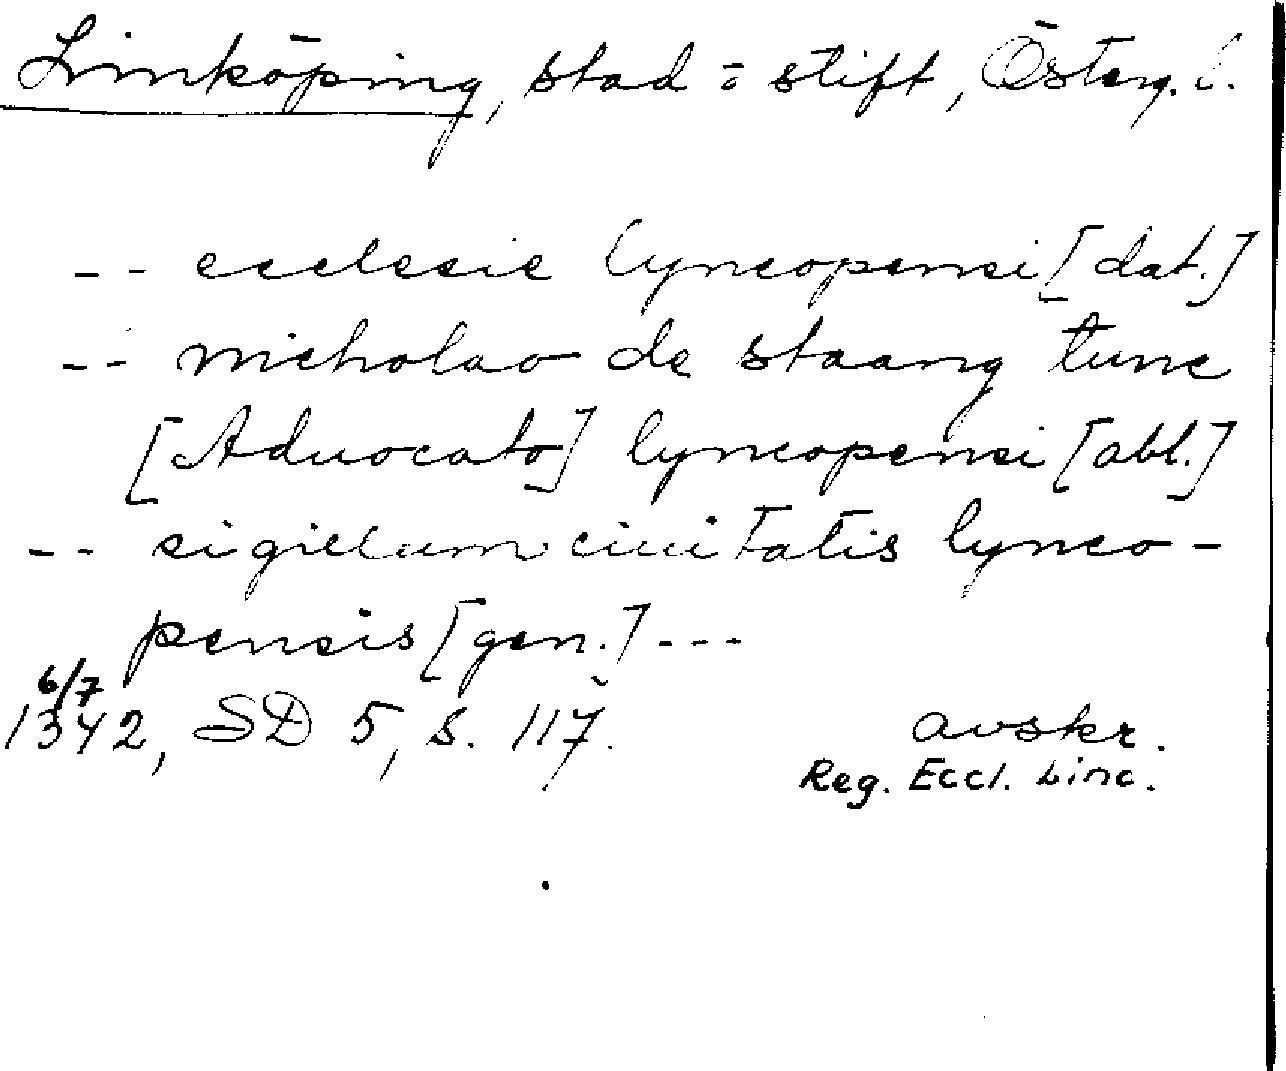 Linköping, stad o stift, Österg. l.
-- ecclesie lyncopensi [dat.]
-- nicholao de staang tunc
[Aduocato] lyncopensi [abl.]
-- sigillum ciuitatis lynco-
pensis [gen.] ---
6/7
1342, SD 5, s. 117. avskr.
Reg. Eccl. Linc.